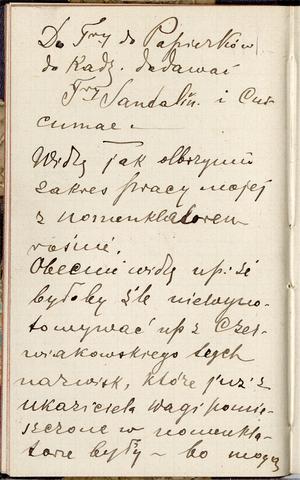 Do Try do Papierków
do Kadz. dodawać
Try Sandalin. i Cur-
cumae –
Widzę jak olbrzymi
zakres pracy mojej
z nomenklatorem
rośnie.
Obecnie widzę np: że
byłoby źle niewyno-
towywać np z Czer-
wiakowskiego tych
nazwisk, które już z
ukaziciela wagi pomie-
szczone w nomenkla-
torze były – bo mogą